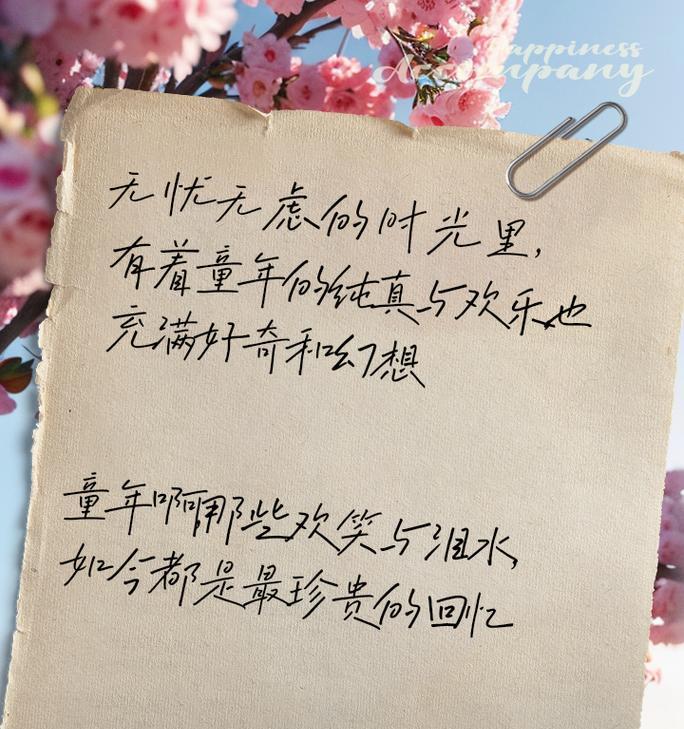 Happiness
Accompany
无忧无虑的时光里，
有着童年的纯真与欢乐也
充满好奇和幻想
童年啊那些欢笑与泪水，
如今都是最珍贵的回忆